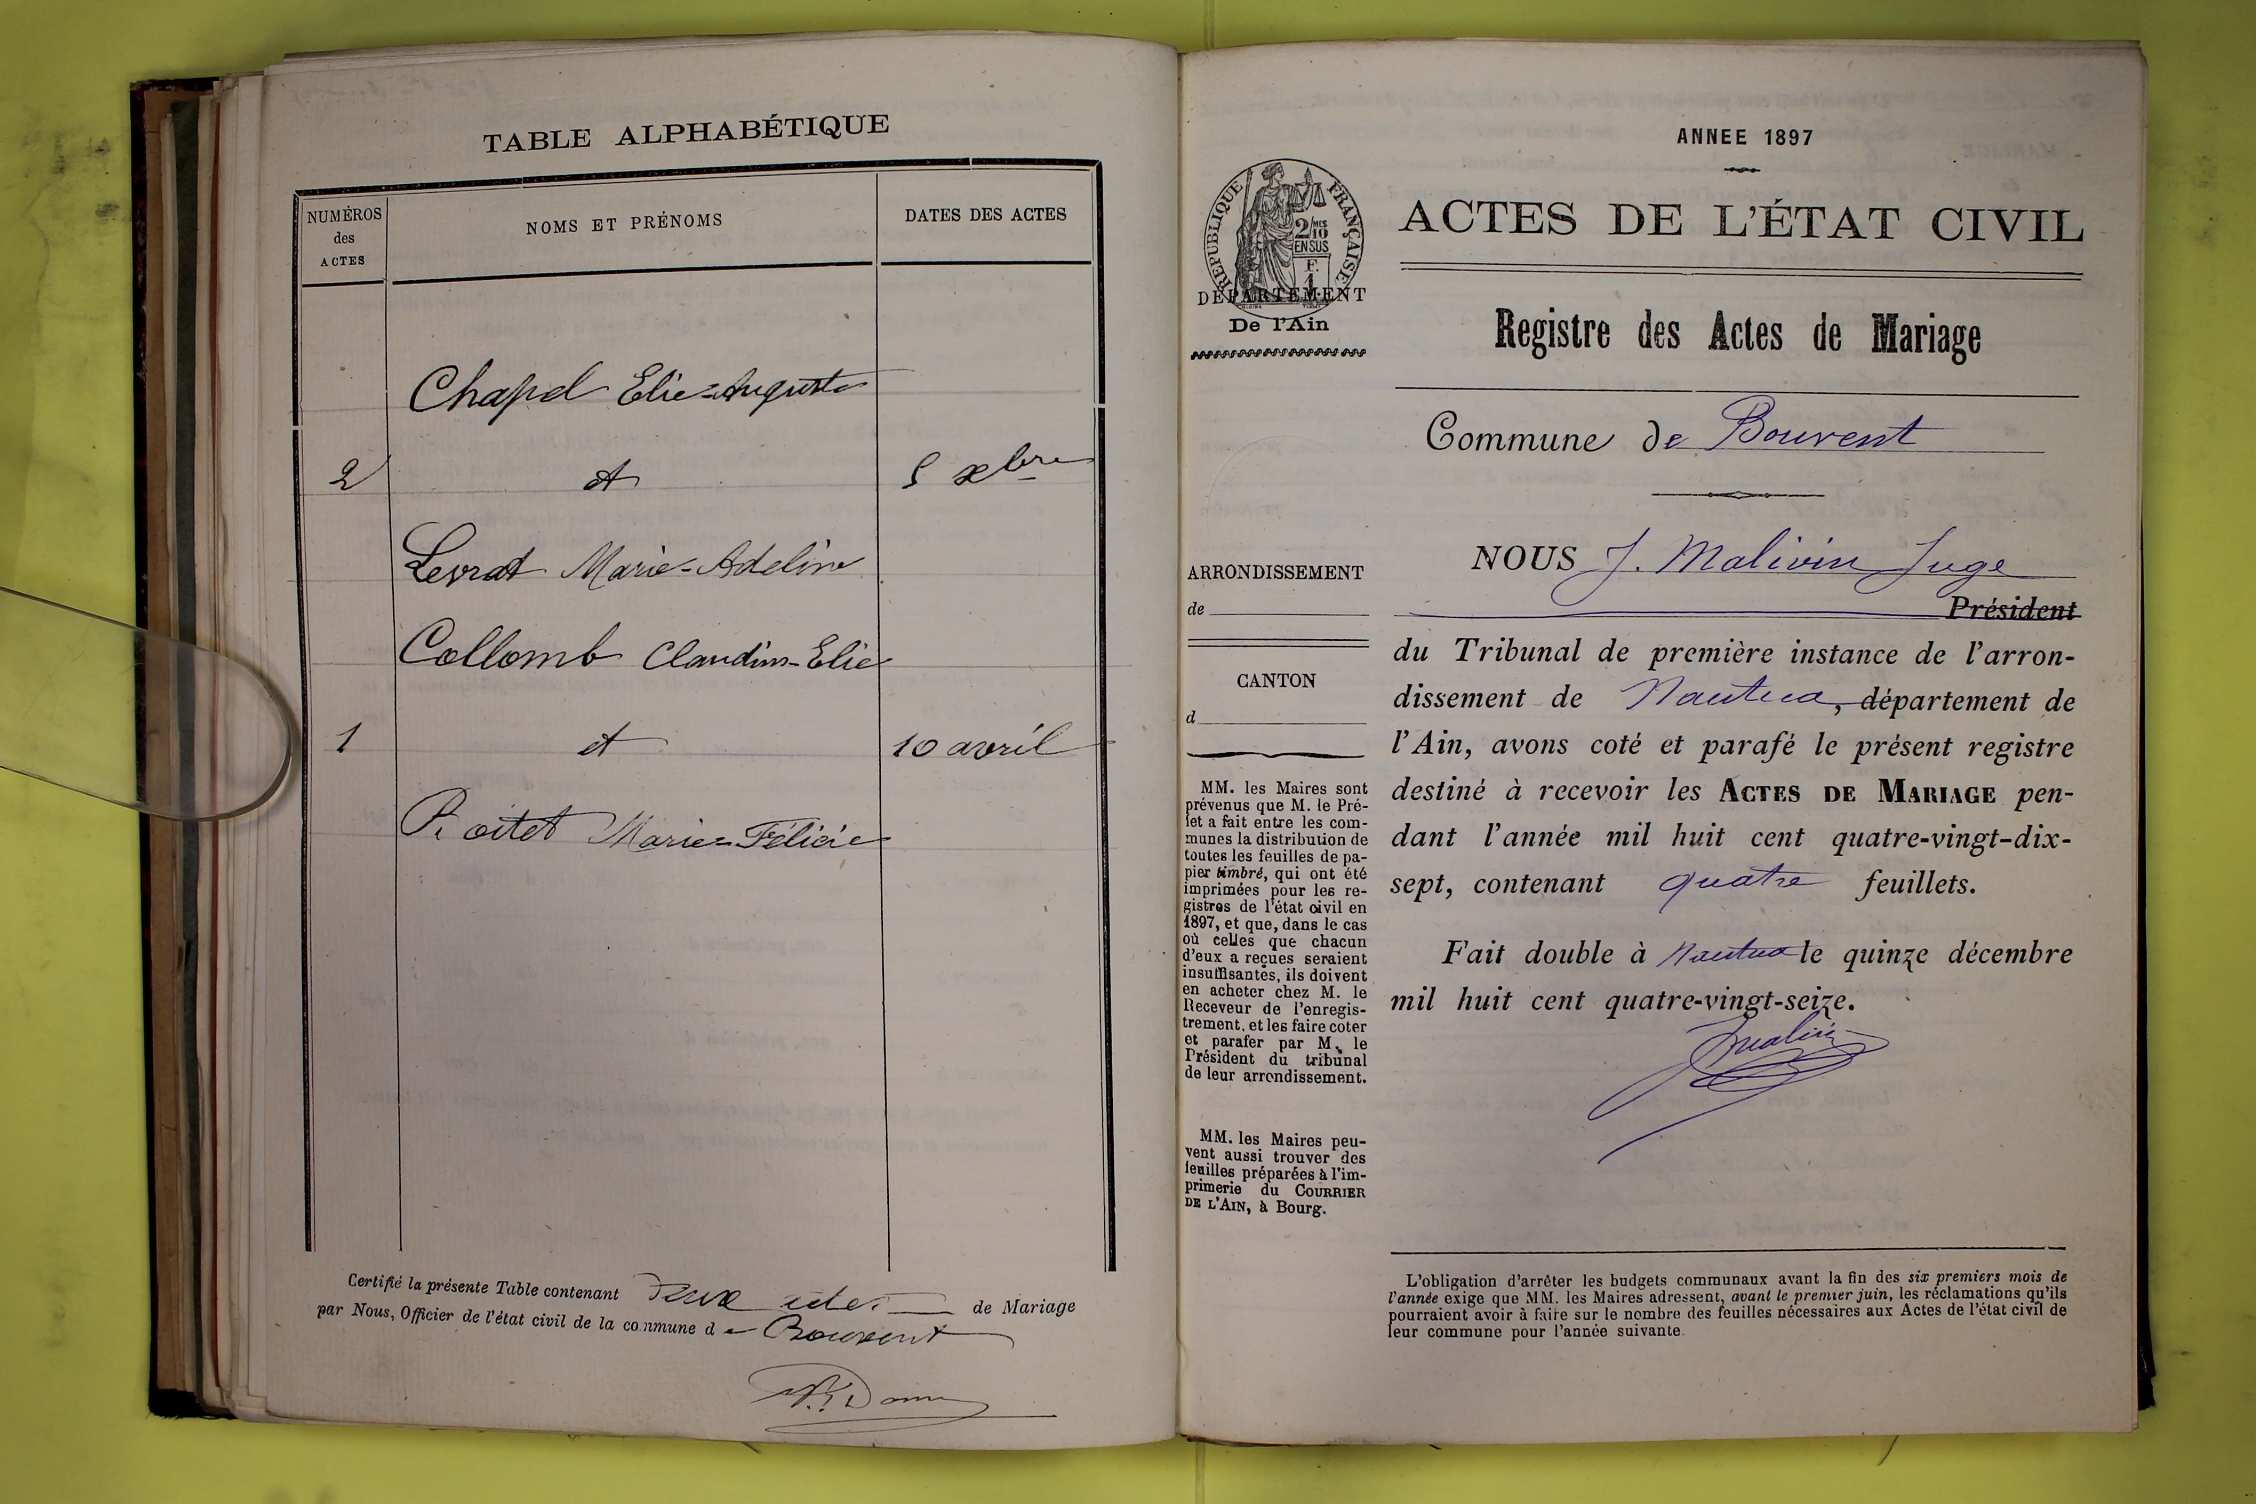 TABLE ALPHABÉTIQUE
NUMÉROS
des
ACTES
NOMS ET PRÉNOMS
DATES DES ACTES
Chapel Elie=Auguste
2 et 5 xbre
Levrat Marie=Adeline
Collomb Claudius-Elie
1 et 10 avril
Roitet Marie=Félicie
Certifié la présente Table contenant Deux actes de Mariage
par Nous, Officier de l'état civil de la commune de Bouvent
ANNEE 1897
RÉPUBLIQUE FRANÇAISE
2/10 MES
EN SUS
F.
1
DÉPARTEMENT
De l'Ain
ARRONDISSEMENT
de
CANTON
d
MM. les Maires sont
prévenus que M. le Pré-
fet a fait entre les com-
munes la distribution de
toutes les feuilles de pa-
pier timbré, qui ont été
imprimées pour les re-
gistres de l'état civil en
1897, et que, dans le cas
où celles que chacun
d'eux a reçues seraient
insuffisantes, ils doivent
en acheter chez M. le
Receveur de l'enregis-
trement, et les faire coter
et parafer par M. le
Président du tribunal
de leur arrondissement.
MM. les Maires peu-
vent aussi trouver des
feuilles préparées à l'im-
primerie du COURRIER
DE L'AIN, à Bourg.
ACTES DE L'ÉTAT CIVIL
Registre des Actes de Mariage
Commune de Bouvent
NOUS J. Malivin Juge
Président
du Tribunal de première instance de l'arron-
dissement de Nantua, département de
l'Ain, avons coté et parafé le présent registre
destiné à recevoir les ACTES DE MARIAGE pen-
dant l'année mil huit cent quatre-vingt-dix-
sept, contenant quatre feuillets.
Fait double à Nantua le quinze décembre
mil huit cent quatre-vingt-seize.
Malivin
L'obligation d'arrêter les budgets communaux avant la fin des six premiers mois de
l'année exige que MM. les Maires adressent, avant le premier juin, les réclamations qu'ils
pourraient avoir à faire sur le nombre des feuilles nécessaires aux Actes de l'état civil de
leur commune pour l'année suivante.